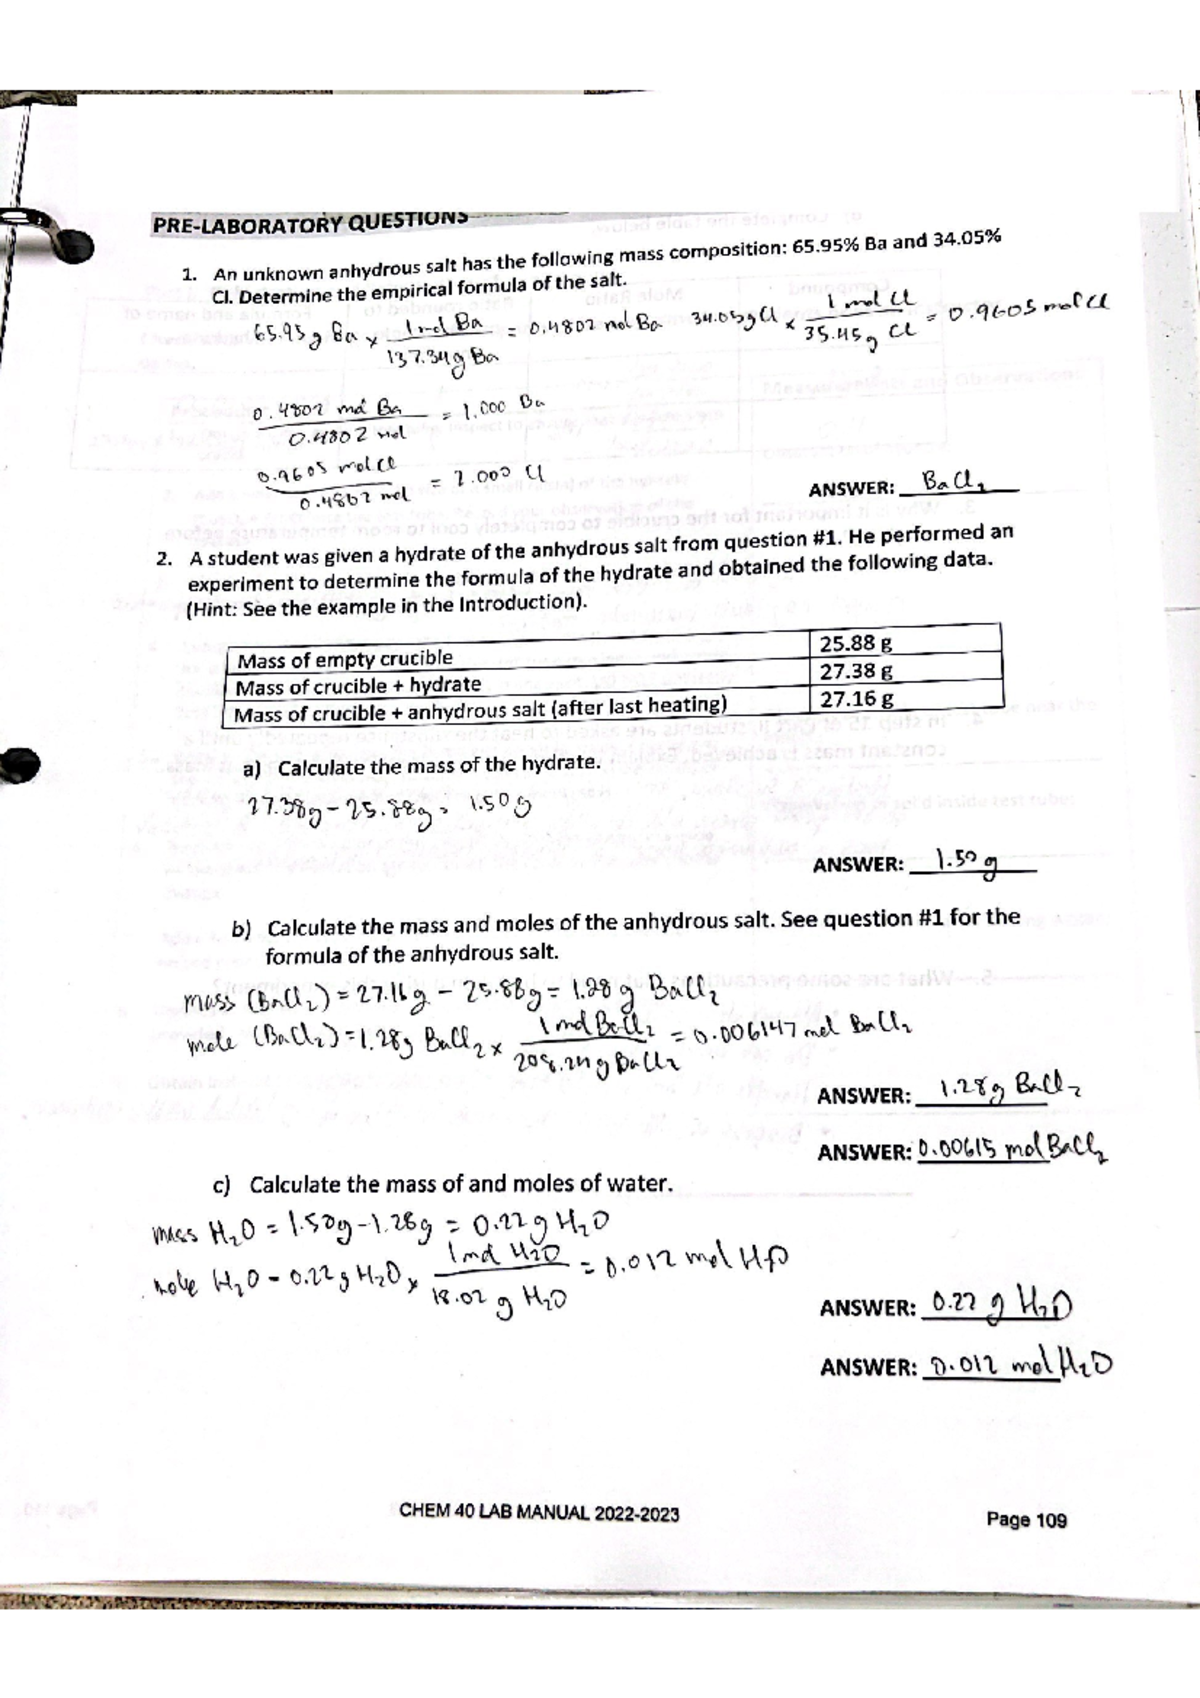 PRE-LABORATORY QUESTIONS
1. An unknown anhydrous salt has the following mass composition: 65.95% Ba and 34.05%
Cl. Determine the empirical formula of the salt.
65.95 g Ba × 1 mol Ba / 137.34 g Ba = 0.4802 mol Ba 34.05 g Cl × 1 mol Cl / 35.45 g Cl = 0.9605 mol Cl
0.4802 mol Ba / 0.4802 mol = 1.000 Ba
0.9605 mol Cl / 0.4802 mol = 2.000 Cl
ANSWER: BaCl₂
2. A student was given a hydrate of the anhydrous salt from question #1. He performed an
experiment to determine the formula of the hydrate and obtained the following data.
(Hint: See the example in the Introduction).
Mass of empty crucible 25.88 g
Mass of crucible + hydrate 27.38 g
Mass of crucible + anhydrous salt (after last heating) 27.16 g
a) Calculate the mass of the hydrate.
27.38g - 25.88g = 1.50 g
ANSWER: 1.50 g
b) Calculate the mass and moles of the anhydrous salt. See question #1 for the
formula of the anhydrous salt.
mass (BaCl₂) = 27.16 g - 25.88 g = 1.28 g BaCl₂
mole (BaCl₂) = 1.28g BaCl₂ × 1 mol BaCl₂ / 208.24 g BaCl₂ = 0.006147 mol BaCl₂
ANSWER: 1.28g BaCl₂
ANSWER: 0.00615 mol BaCl₂
c) Calculate the mass of and moles of water.
mass H₂O = 1.50g - 1.28g = 0.22 g H₂O
mole H₂O = 0.22 g H₂O × 1 mol H₂O / 18.02 g H₂O = 0.012 mol H₂O
ANSWER: 0.22 g H₂O
ANSWER: 0.012 mol H₂O
CHEM 40 LAB MANUAL 2022-2023
Page 109